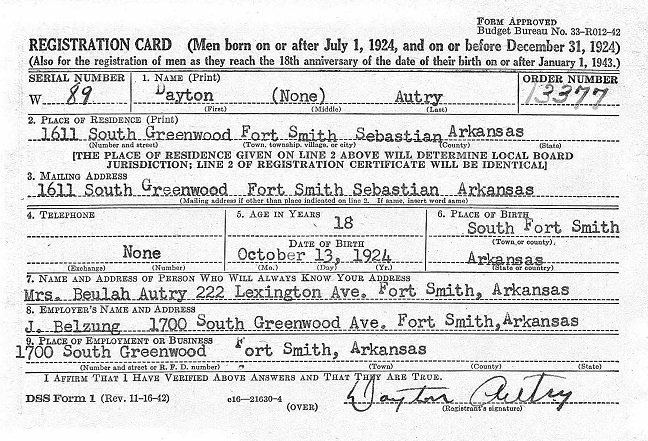 FORM APPROVED
Budget Bureau No. 33-R012-42
REGISTRATION CARD (Men born on or after July 1, 1924, and on or before December 31, 1924)
(Also for the registration of men as they reach the 18th anniversary of the date of their birth on or after January 1, 1943.)
SERIAL NUMBER 1. NAME (Print) ORDER NUMBER
W 89 Dayton (None) Autry 13377
(First) (Middle) (Last)
2. PLACE OF RESIDENCE (Print)
1611 South Greenwood Fort Smith Sebastian Arkansas
(Number and street) (Town, township, village, or city) (County) (State)
[THE PLACE OF RESIDENCE GIVEN ON LINE 2 ABOVE WILL DETERMINE LOCAL BOARD
JURISDICTION; LINE 2 OF REGISTRATION CERTIFICATE WILL BE IDENTICAL]
3. MAILING ADDRESS
1611 South Greenwood Fort Smith Sebastian Arkansas
(Mailing address if other than place indicated on line 2. If same, insert word same)
4. TELEPHONE 5. AGE IN YEARS 6. PLACE OF BIRTH
18 South Fort Smith
DATE OF BIRTH (Town or county)
None October 13, 1924 Arkansas
(Exchange) (Number) (Mo.) (Day) (Yr.) (State or country)
7. NAME AND ADDRESS OF PERSON WHO WILL ALWAYS KNOW YOUR ADDRESS
Mrs. Beulah Autry 222 Lexington Ave. Fort Smith, Arkansas
8. EMPLOYER'S NAME AND ADDRESS
J. Belzung 1700 South Greenwood Ave. Fort Smith, Arkansas
9. PLACE OF EMPLOYMENT OR BUSINESS
1700 South Greenwood Fort Smith, Arkansas
(Number and street or R. F. D. number) (Town) (County) (State)
I AFFIRM THAT I HAVE VERIFIED ABOVE ANSWERS AND THAT THEY ARE TRUE.
DSS Form 1 (Rev. 11-16-42) c16—21630-4 Dayton Autry
(OVER) (Registrant's signature)